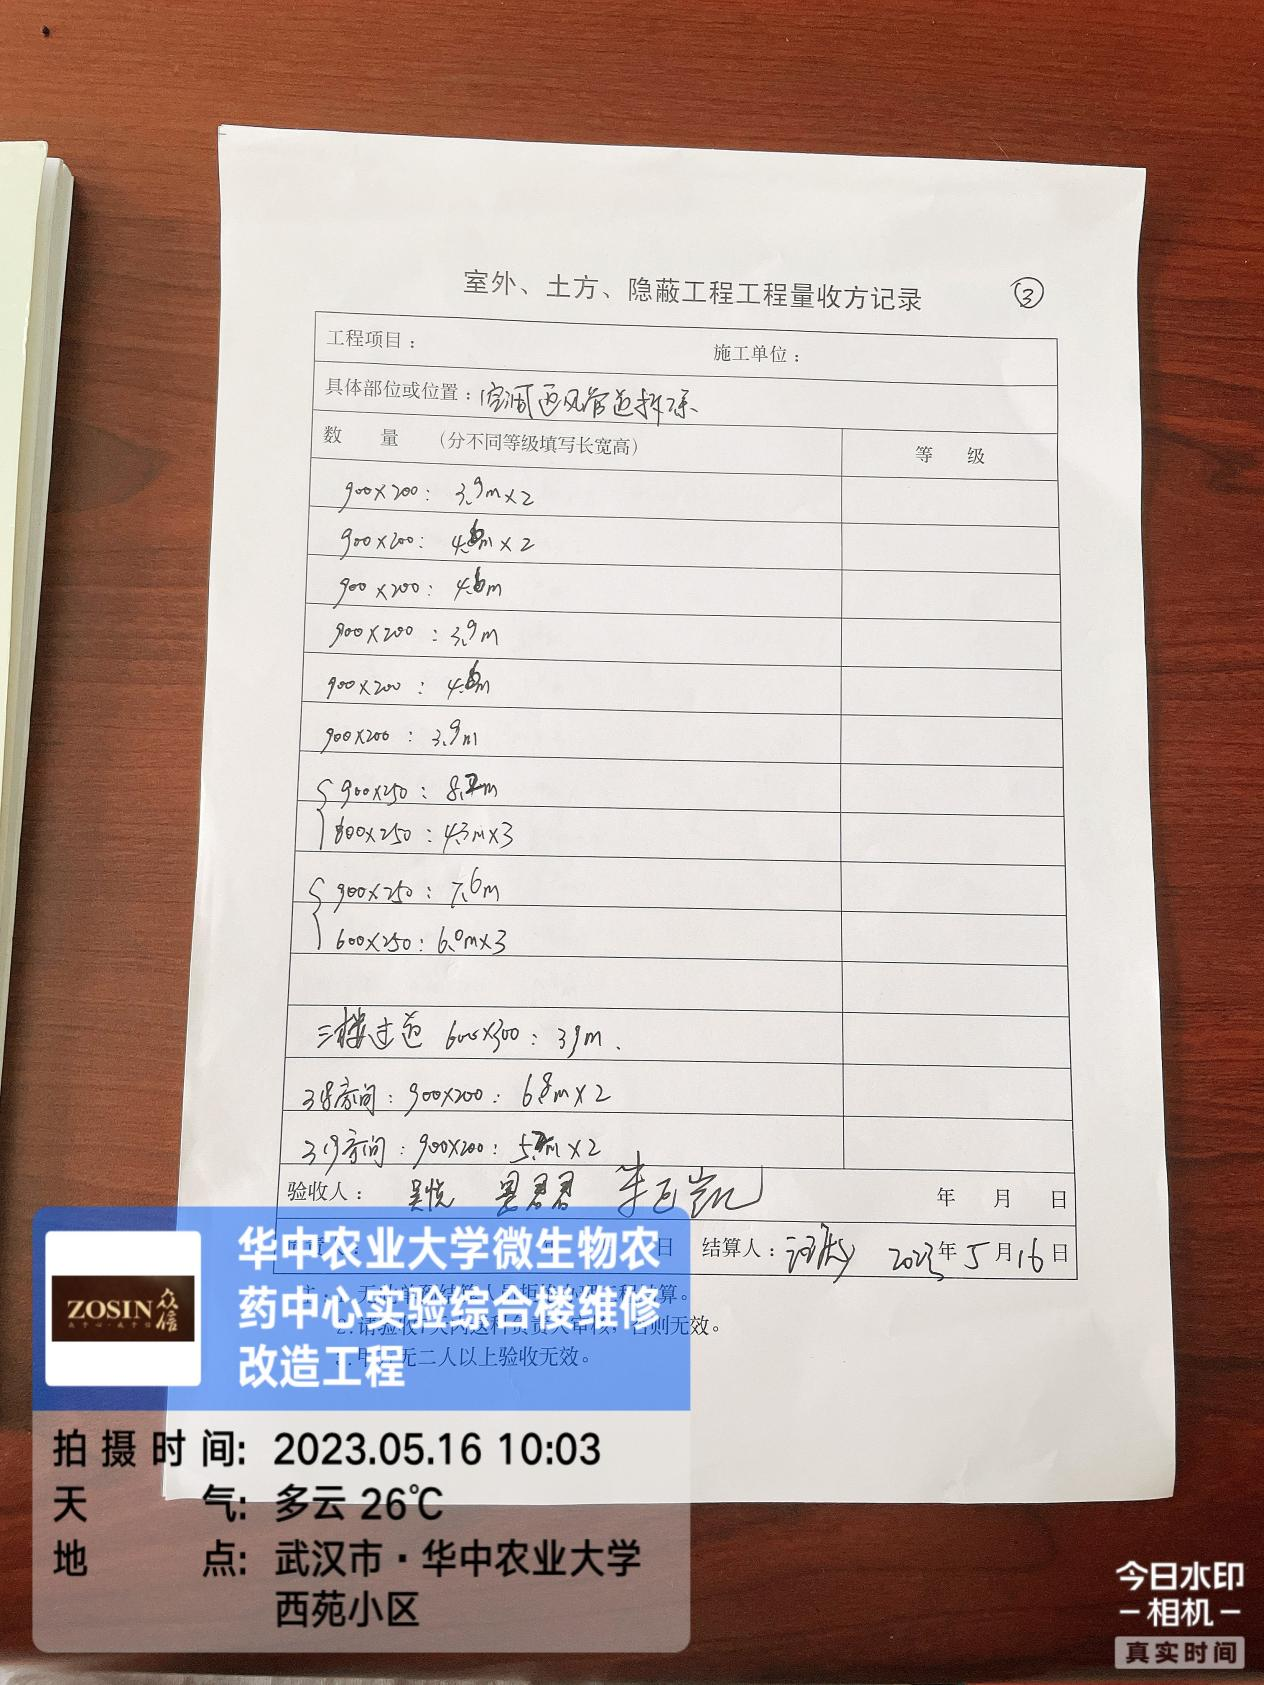 室外、土方、隐蔽工程工程量收方记录 ③
工程项目： 施工单位：
具体部位或位置：空调通风管道拆除
数 量 （分不同等级填写长宽高） 等 级
900×200： 3.9m×2
900×200： 4.6m×2
900×200： 4.6m
900×200： 3.9m
900×200： 4.6m
900×200： 3.9m
900×250： 8.2m
800×250：4.3m×3
900×250： 7.6m
600×250：6.0m×3
三楼过道 600×300： 39m.
318房间：900×200： 6.8m×2
319房间：900×200： ×2
验收人： 吴悦 年 月 日
日 结算人： 2023年 5月16日
算。
2.请验收 天内送科负责人审核，否则无效。
无二人以上验收无效。
ZOSIN 众信
华中农业大学微生物农
药中心实验综合楼维修
改造工程
拍摄时间: 2023.05.16 10:03
天 气: 多云 26℃
地 点: 武汉市·华中农业大学
西苑小区
今日水印
相机
真实时间